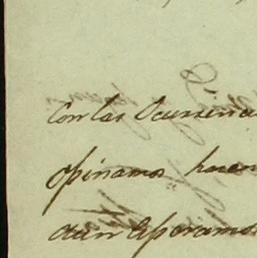 Con las Ocurrencia
opinamos hacer
aun esperamos